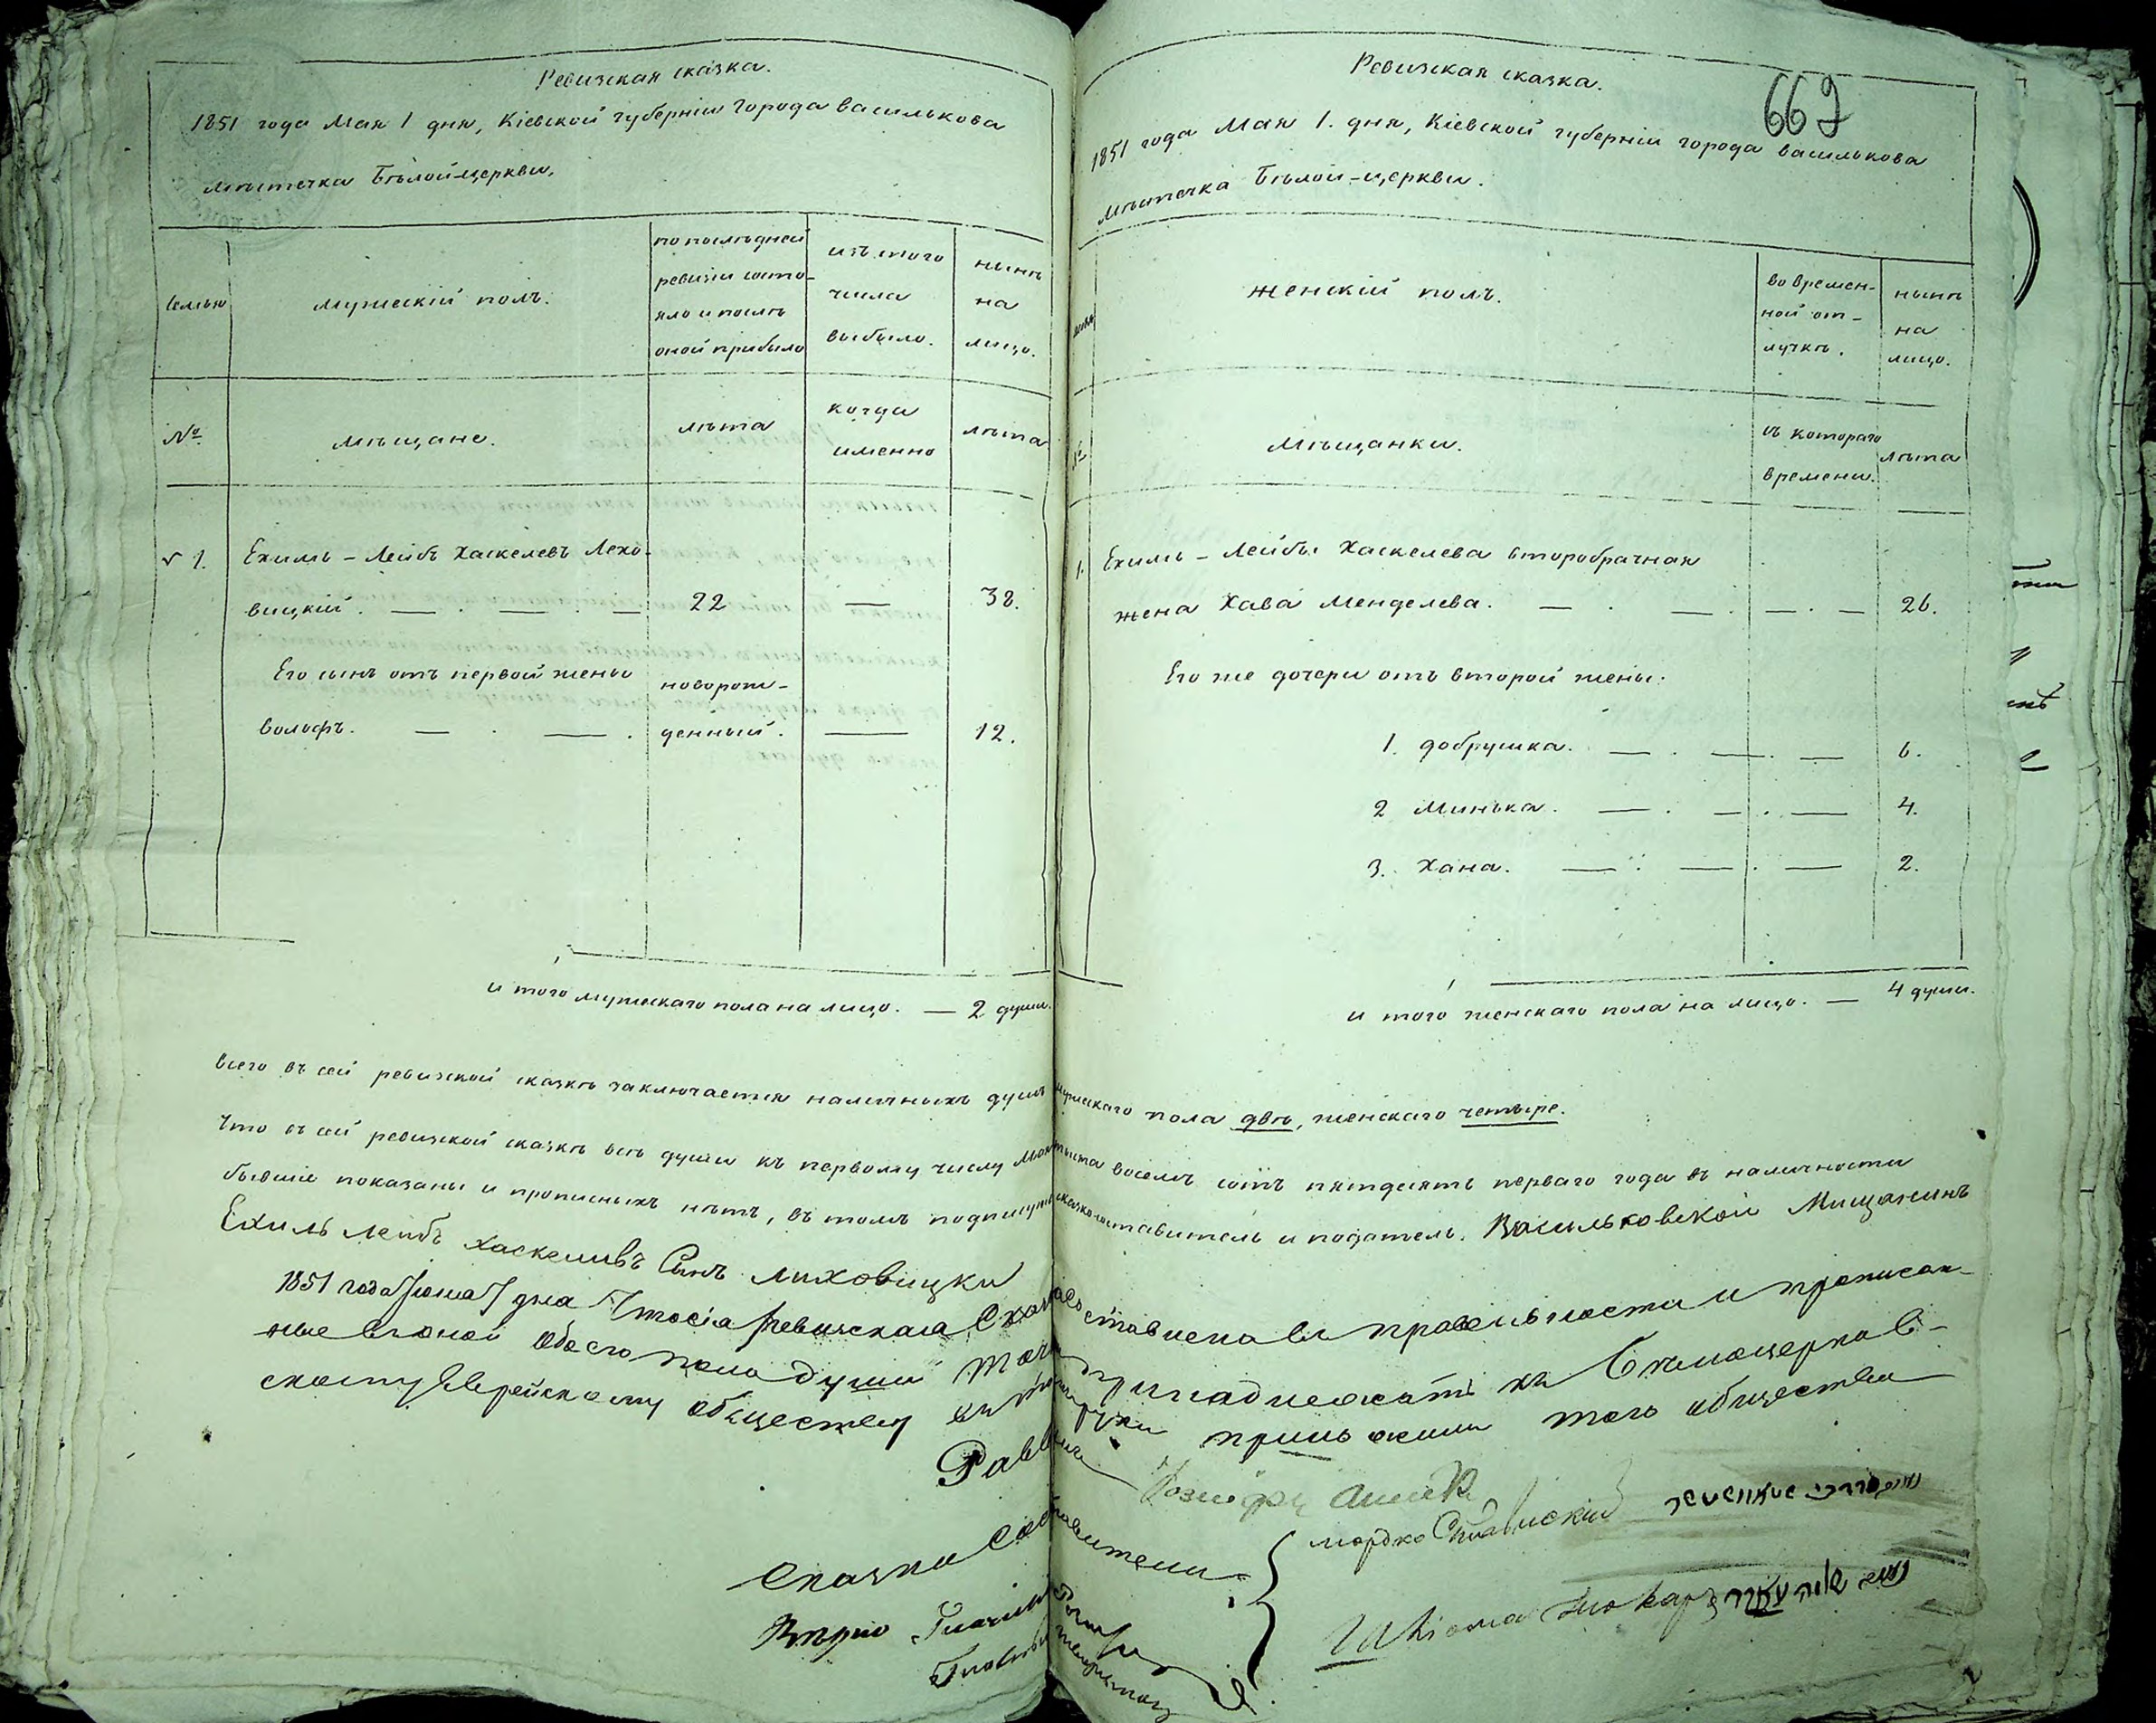 Ревизская сказка.
1851 года Мая 1 дня, Кіевской губерніи города Василькова
мѣстечка Бѣлой-церкви,
семья
мужескій полъ.
по послѣдней
ревизіи состо-
яло и послѣ
оной прибыло
изъ того
числа
выбыло.
нынѣ
на
лицо.
№
мѣщане.
лѣта
когда
именно
лѣта
1. Ехиль-Лейбъ Хаскелевъ Лехо-
вицкій. — . — . — 22 — 38.
Его сынъ отъ первой жены новорож-
Вольфъ. — . — . денный. — 12.
и того мужескаго пола на лицо. — 2 души.
Ревизская сказка.
662
1851 года Мая 1. дня, Кіевской губерніи города Василькова
мѣстечка Бѣлой-церкви.
женскій полъ.
во времен-
ной от-
лучкѣ.
нынѣ
на
лицо.
№
Мѣщанки.
съ котораго
времени.
лѣта
1. Ехиль-Лейбы Хаскелева второбрачная
жена Хава Менделева. — . — . — . — 26.
Его же дочери отъ второй жены.
1. Добрушка. — . — . — 6.
2 Минька. — . — . — 4.
3. Хана. — . — . — 2.
и того женскаго пола на лицо. — 4 души.
Всего въ сей ревизской сказкѣ заключается наличныхъ душъ мужескаго пола двѣ, женскаго четыре.
Что въ сей ревизской сказкѣ всѣ души къ первому числу Мая тысяча восемь сотъ пятдесятъ перваго года въ наличности
бывшіе показаны и прописныхъ нѣтъ, въ томъ подпишусь сказкосоставитель и податель. Васильковской Мищанинъ
Ехиль Леибъ Хаскеливъ Сынъ Лиховицки
1851 года дня Что сія Ревизская Сказка составлена въ правильности и прописан-
ные въ оной обоего пола души точно принадлежатъ къ Бѣлоцерков-
скому Еврейскому обществу въ томъ руки приложили того общества
Раввинъ
Сказко Составители
мордко